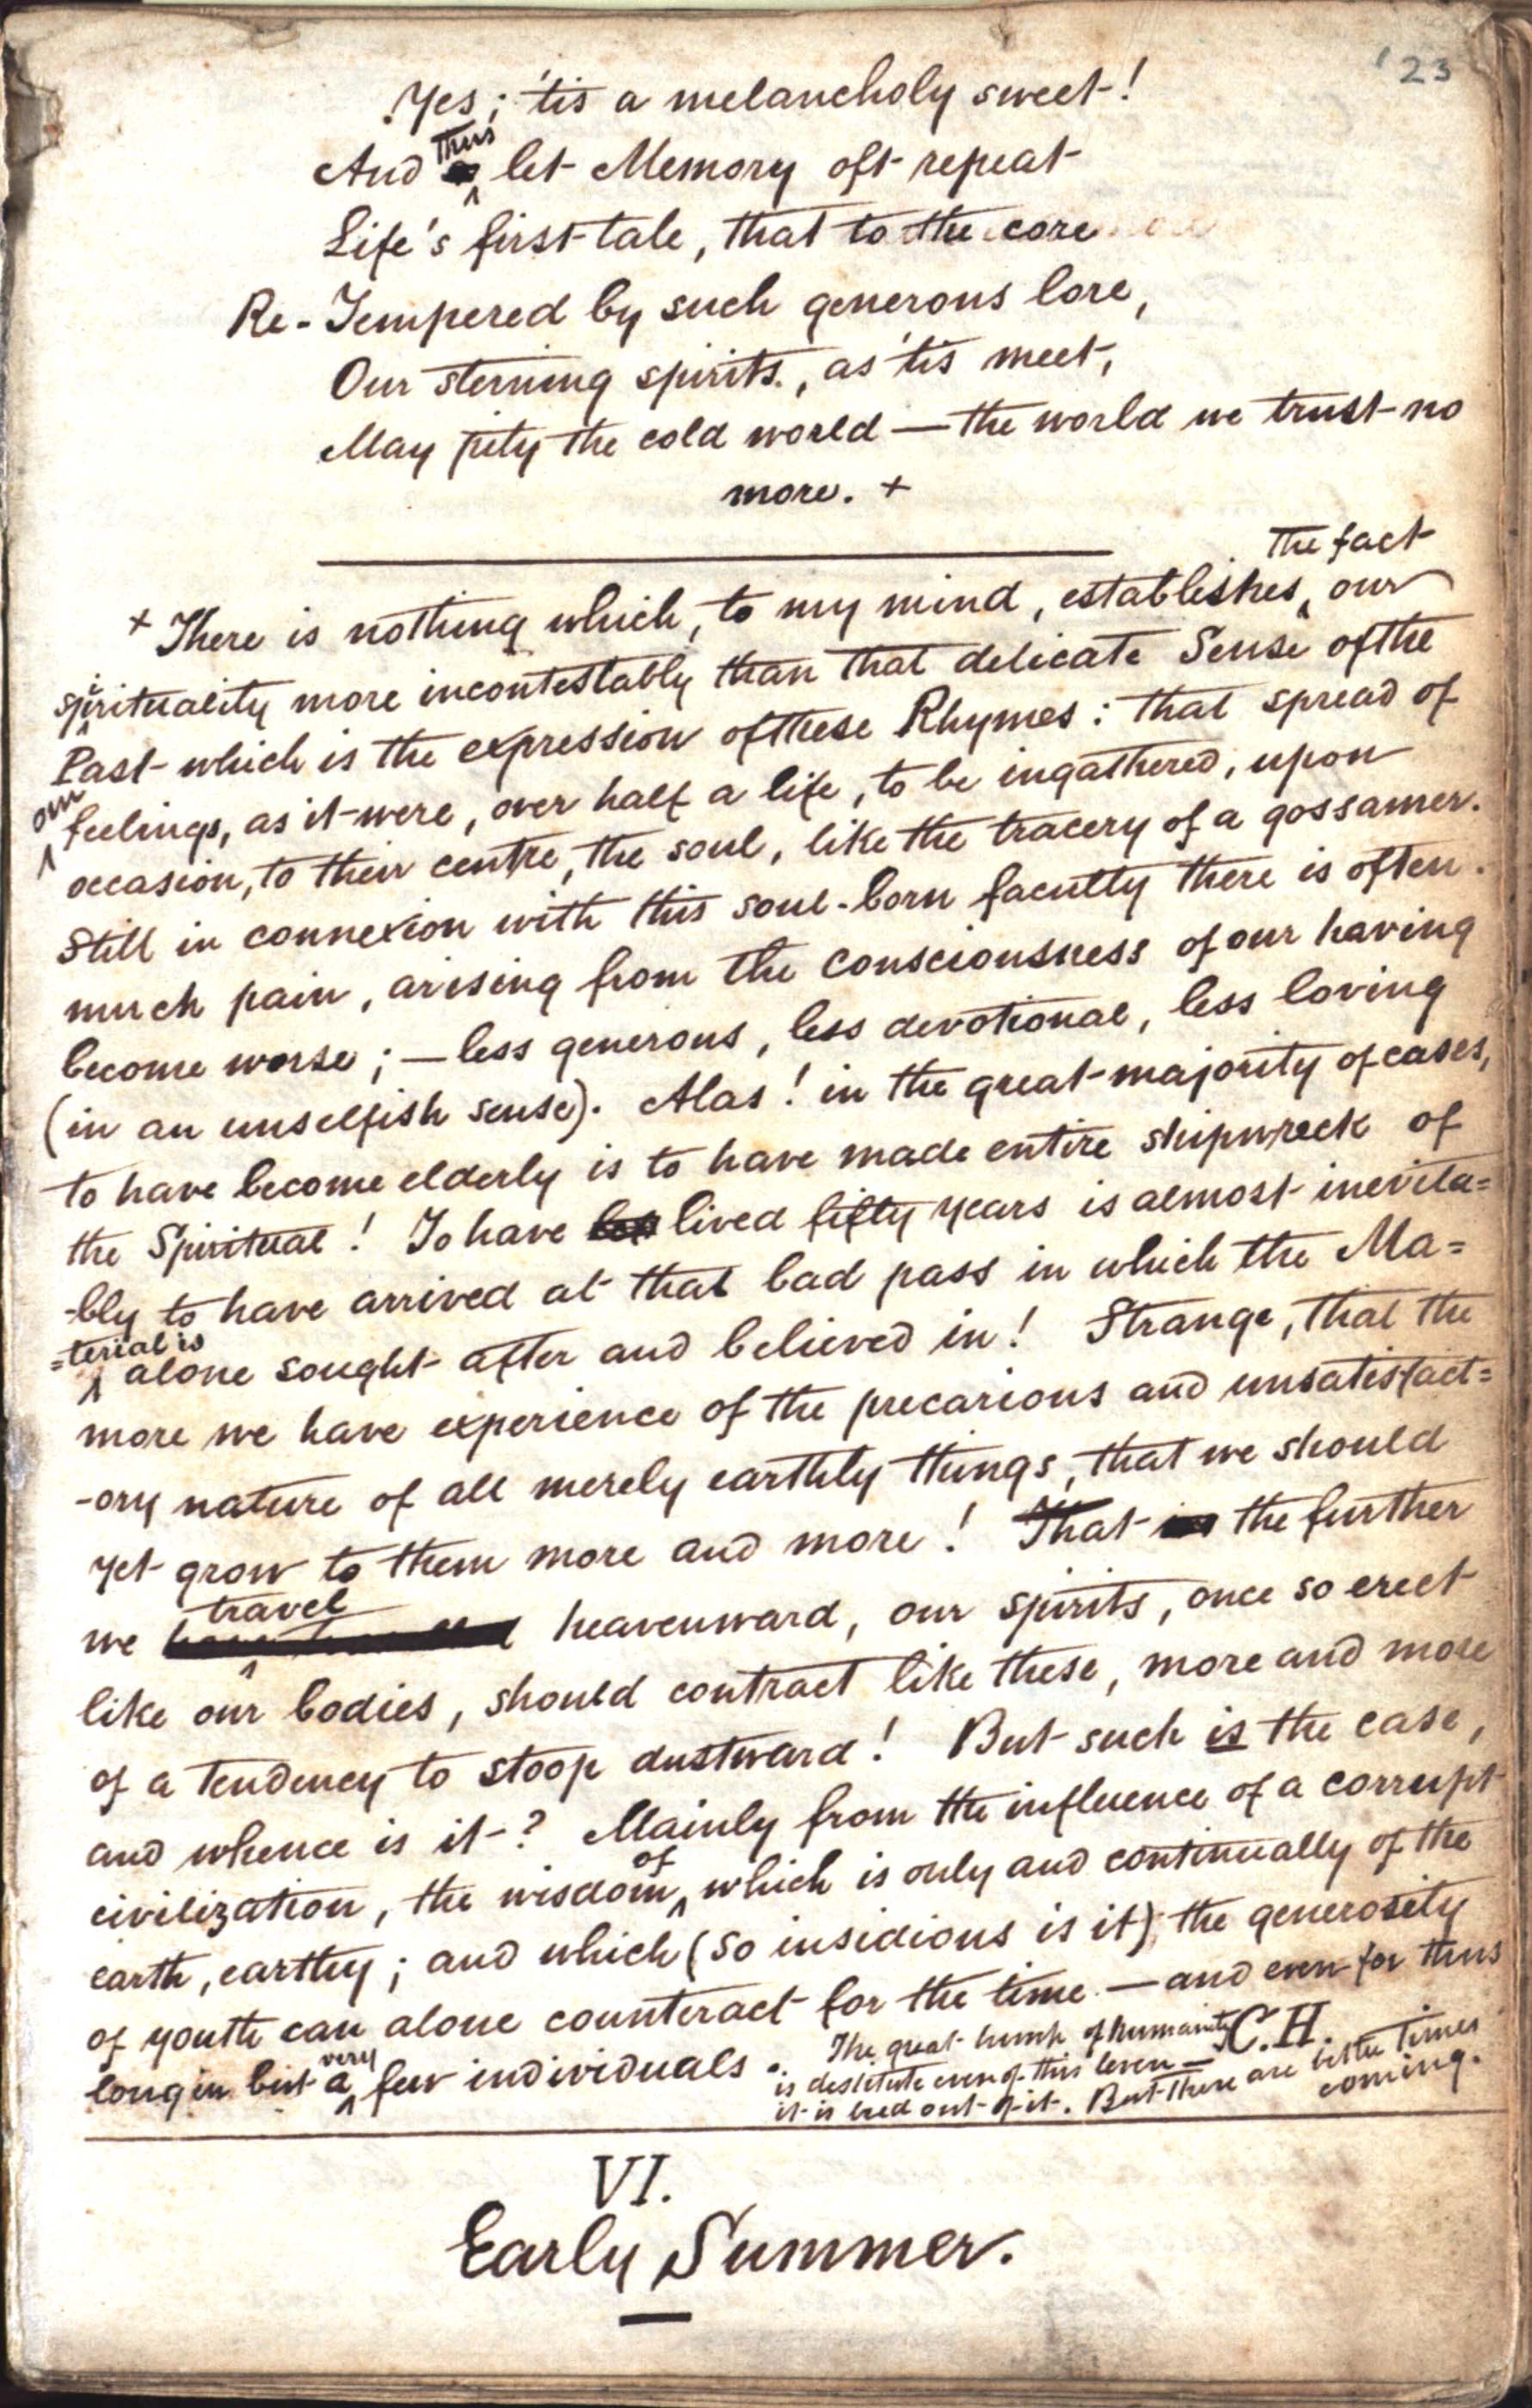 '23
Yes; 'tis a melancholy sweet!
And thus let Memory oft repeat
Life's first tale, that to the core
Re-Tempered by such generous lore,
Our sterning spirits, as 'tis meet,
May pity the cold world — the world we trust no
more. +
+ There is nothing which, to my mind, establishes the fact our
spirituality more incontestably than that delicate Sense of the
Past which is the expression of these Rhymes: that spread of
our feelings, as it were, over half a life, to be ingathered, upon
occasion, to their centre, the soul, like the tracery of a gossamer.
Still in connexion with this soul-born faculty there is often
much pain, arising from the consciousness of our having
become worse; — less generous, less devotional, less loving
(in an unselfish sense). Alas! in the great majority of cases,
to have become elderly is to have made entire shipwreck of
the Spiritual! To have lived fifty years is almost inevita=
-bly to have arrived at that bad pass in which the Ma=
=terial is alone sought after and believed in! Strange, that the
more we have experience of the precarious and unsatisfact=
-ory nature of all merely earthly things, that we should
yet grow to them more and more! That the further
we travel heavenward, our spirits, once so erect
like our bodies, should contract like these, more and more
of a tendency to stoop dustward! But such is the case,
and whence is it? Mainly from the influence of a corrupt
civilization, the wisdom of which is only and continually of the
earth, earthy; and which (so insidious is it) the generosity
of youth can alone counteract for the time — and even for thus
long in but a very few individuals. The great lump of humanity
is destitute even of this leven —
it is bred out of it. But there are better times
coming.
C.H.
VI.
Early Summer.